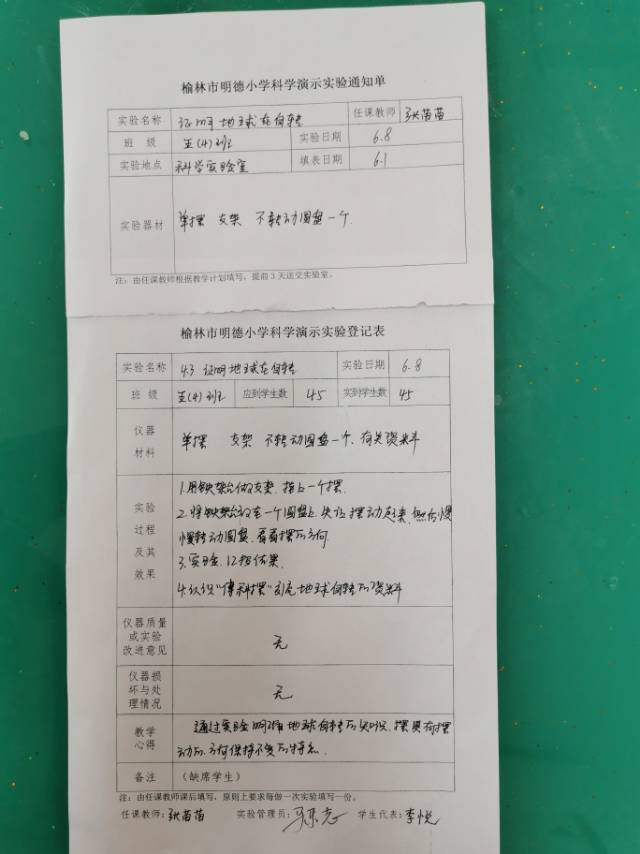 榆林市明德小学科学演示实验通知单
实验名称 证明地球在自转 任课教师 张苗苗
班 级 五(4)班 实验日期 6.8
实验地点 科学实验室 填表日期 6.1
实验器材 单摆 支架 不转动圆盘一个.
注：由任课教师根据教学计划填写，提前3天送交实验室。
榆林市明德小学科学演示实验登记表
实验名称 4.3 证明地球在自转 实验日期 6.8
班 级 五(4)班 应到学生数 45 实到学生数 45
仪器材料 单摆 支架 不转动圆盘一个、有关资料
实验过程及其效果
1.用铁架台做支架，挂上一个摆.
2.将铁架台放在一个圆盘上.先让摆动起来,然后慢
慢转动圆盘.看看摆的方向
3.实验.记担结果.
4.认识"傅科摆"

地球自转的资料
仪器质量或实验改进意见 无
仪器损坏与处理情况 无
教学心得 通过实验明确地球自转的知识.摆具有摆
动的方向保持不变的特点
备注 （缺席学生）
注：由任课教师课后填写，原则上要求每做一次实验填写一份。
任课教师：张苗苗 实验管理员： 学生代表：李悦